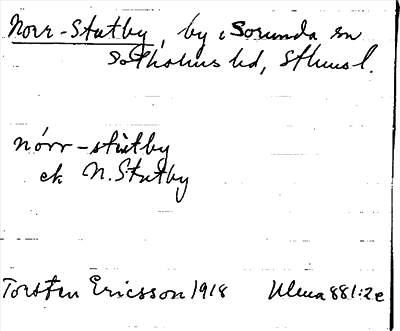 Norr-Stutby, by i Sorunda sn
Sotholms hd, Sthms l.
nórr-stutby
ek N. Stutby
Torsten Ericsson 1918 Ulma 881:2e